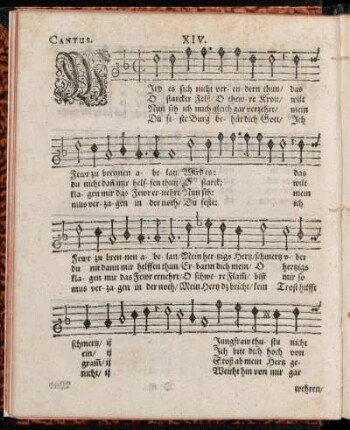 CANTUS. XIV.
Wird es sich nicht ver- en- dern thun/ das
O starcker Felß/ O thewre Kron/ wilt
Nun sitz ich mich gleich gar verzehrt/ mein
Du fe- ste Burg be- hüt dich Gott/ Ich
Fewr zu brennen a- be- lan? Wird es: das
du nicht dañ mir helf- fen thun/ O starck: wilt
kla- gen mir das Fewr er- nehrt/ Nun sih: mein
mus ver- za- gen in der noth/ Du feste: ich
Fewr zu bren nen a- be- lan/ Mein her- tzigs Hertz/ schmertz ü- ber
du nit dann mir helffen thun/ Er- barm dich mein/ O hertzigs
klagen mir das Fewr ernehrt/ O schwe- re bist mir so
mus ver- za- gen in der noth/ Mein Hertz dz bricht/ kein Trost hilfft
schmertz/ ij Jungfraw thu- stu nicht
ein/ ij Ich bitt dich hoch von
gram/ ij Stoß ab mein Hertz ge-
nicht/ ij Weicht hin von mir gar
wehren/